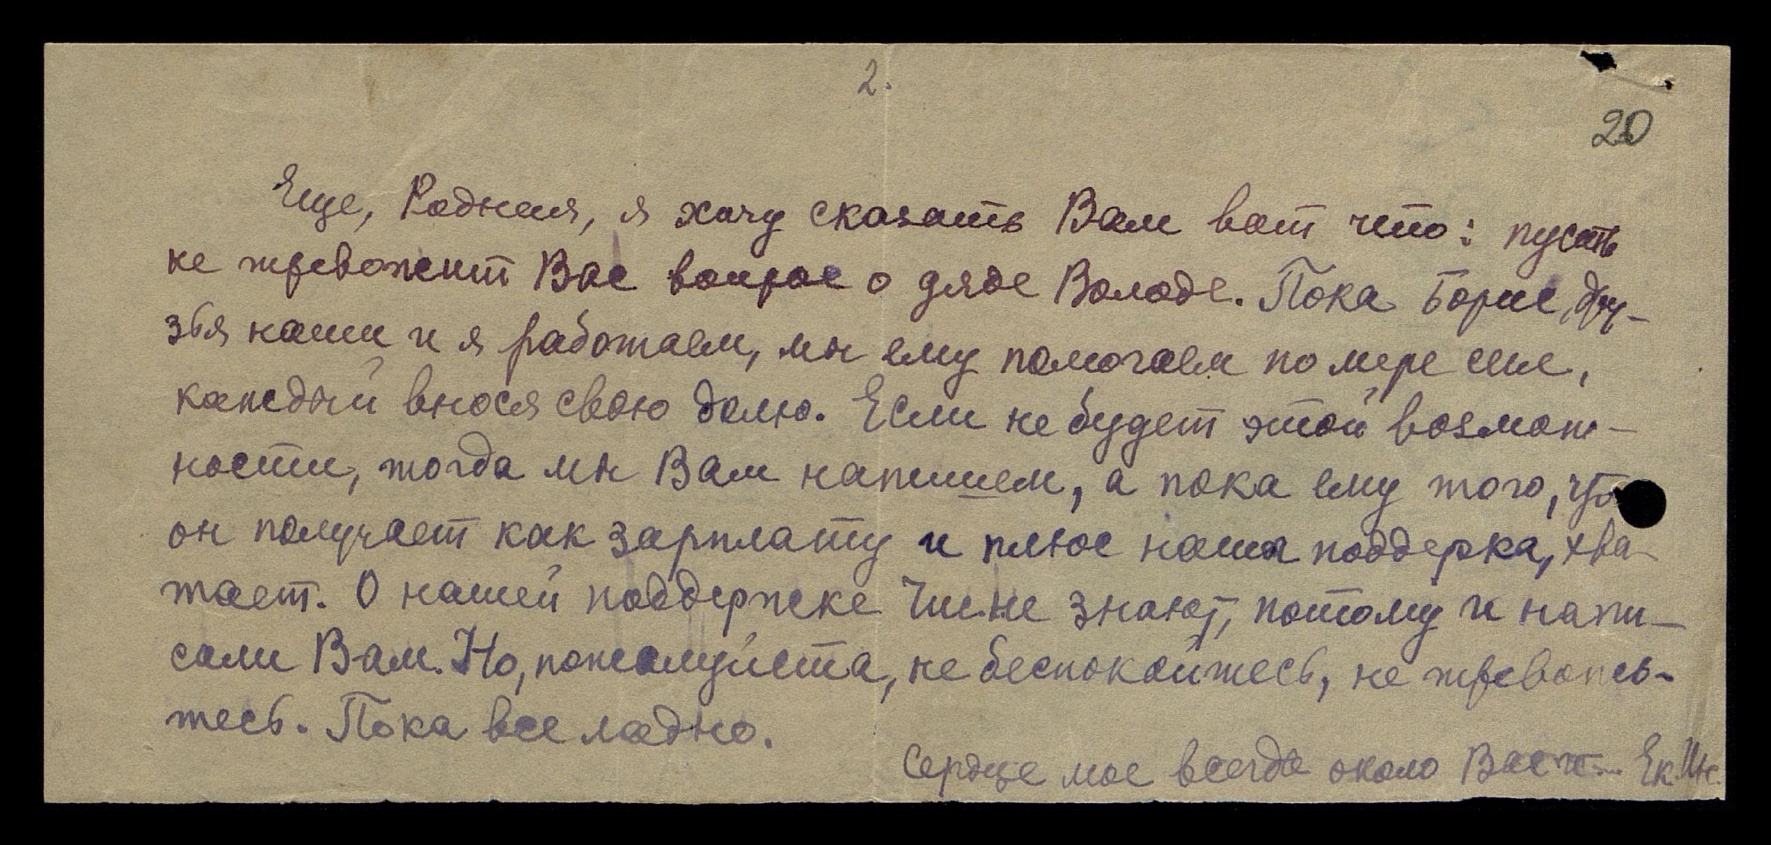 2.
20
Еще, Родная, я хочу сказать Вам вот что: пусть
не тревожит Вас вопрос о дяде Володе. Пока Борис, дру-
зья наши и я работаем, мы ему помогаем по мере сил,
каждый внося свою долю. Если не будет этой возмож-
ности, тогда мы Вам напишем, а пока ему того, что
он получает как зарплату и плюс наша поддержка, хва-
тает. О нашей поддержке не знают, потому и напи-
сали Вам. Но, пожалуйста, не беспокойтесь, не тревожь-
тесь. Пока все ладно.
Сердце мое всегда около Вас